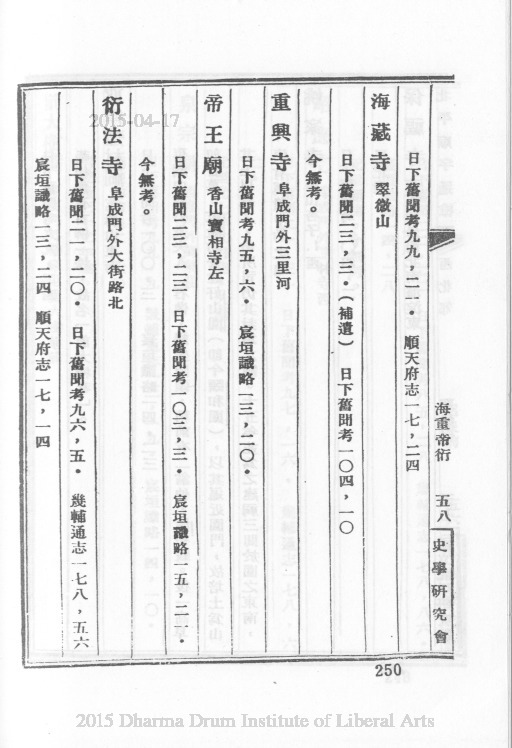 海重帝衍　五八　史學硏究會
日下舊聞考九九，二一。　順天府志一七，二四
海藏寺　翠微山
日下舊聞二三，三。（補遺）　日下舊聞考一〇四，一〇
今無考。
重興寺　阜成門外三里河
日下舊聞考九五，六。　宸垣識略一三，二〇。
帝王廟　香山寶相寺左
日下舊聞二三，二三　日下舊聞考一〇三，三。　宸垣識略一五，二一。
今無考。
衍法寺　阜成門外大街路北
日下舊聞二一，二〇。　日下舊聞考九六，五。　畿輔通志一七八，五六
宸垣識略一三，二四　順天府志一七，一四
250
2015-04-17
2015 Dharma Drum Institute of Liberal Arts